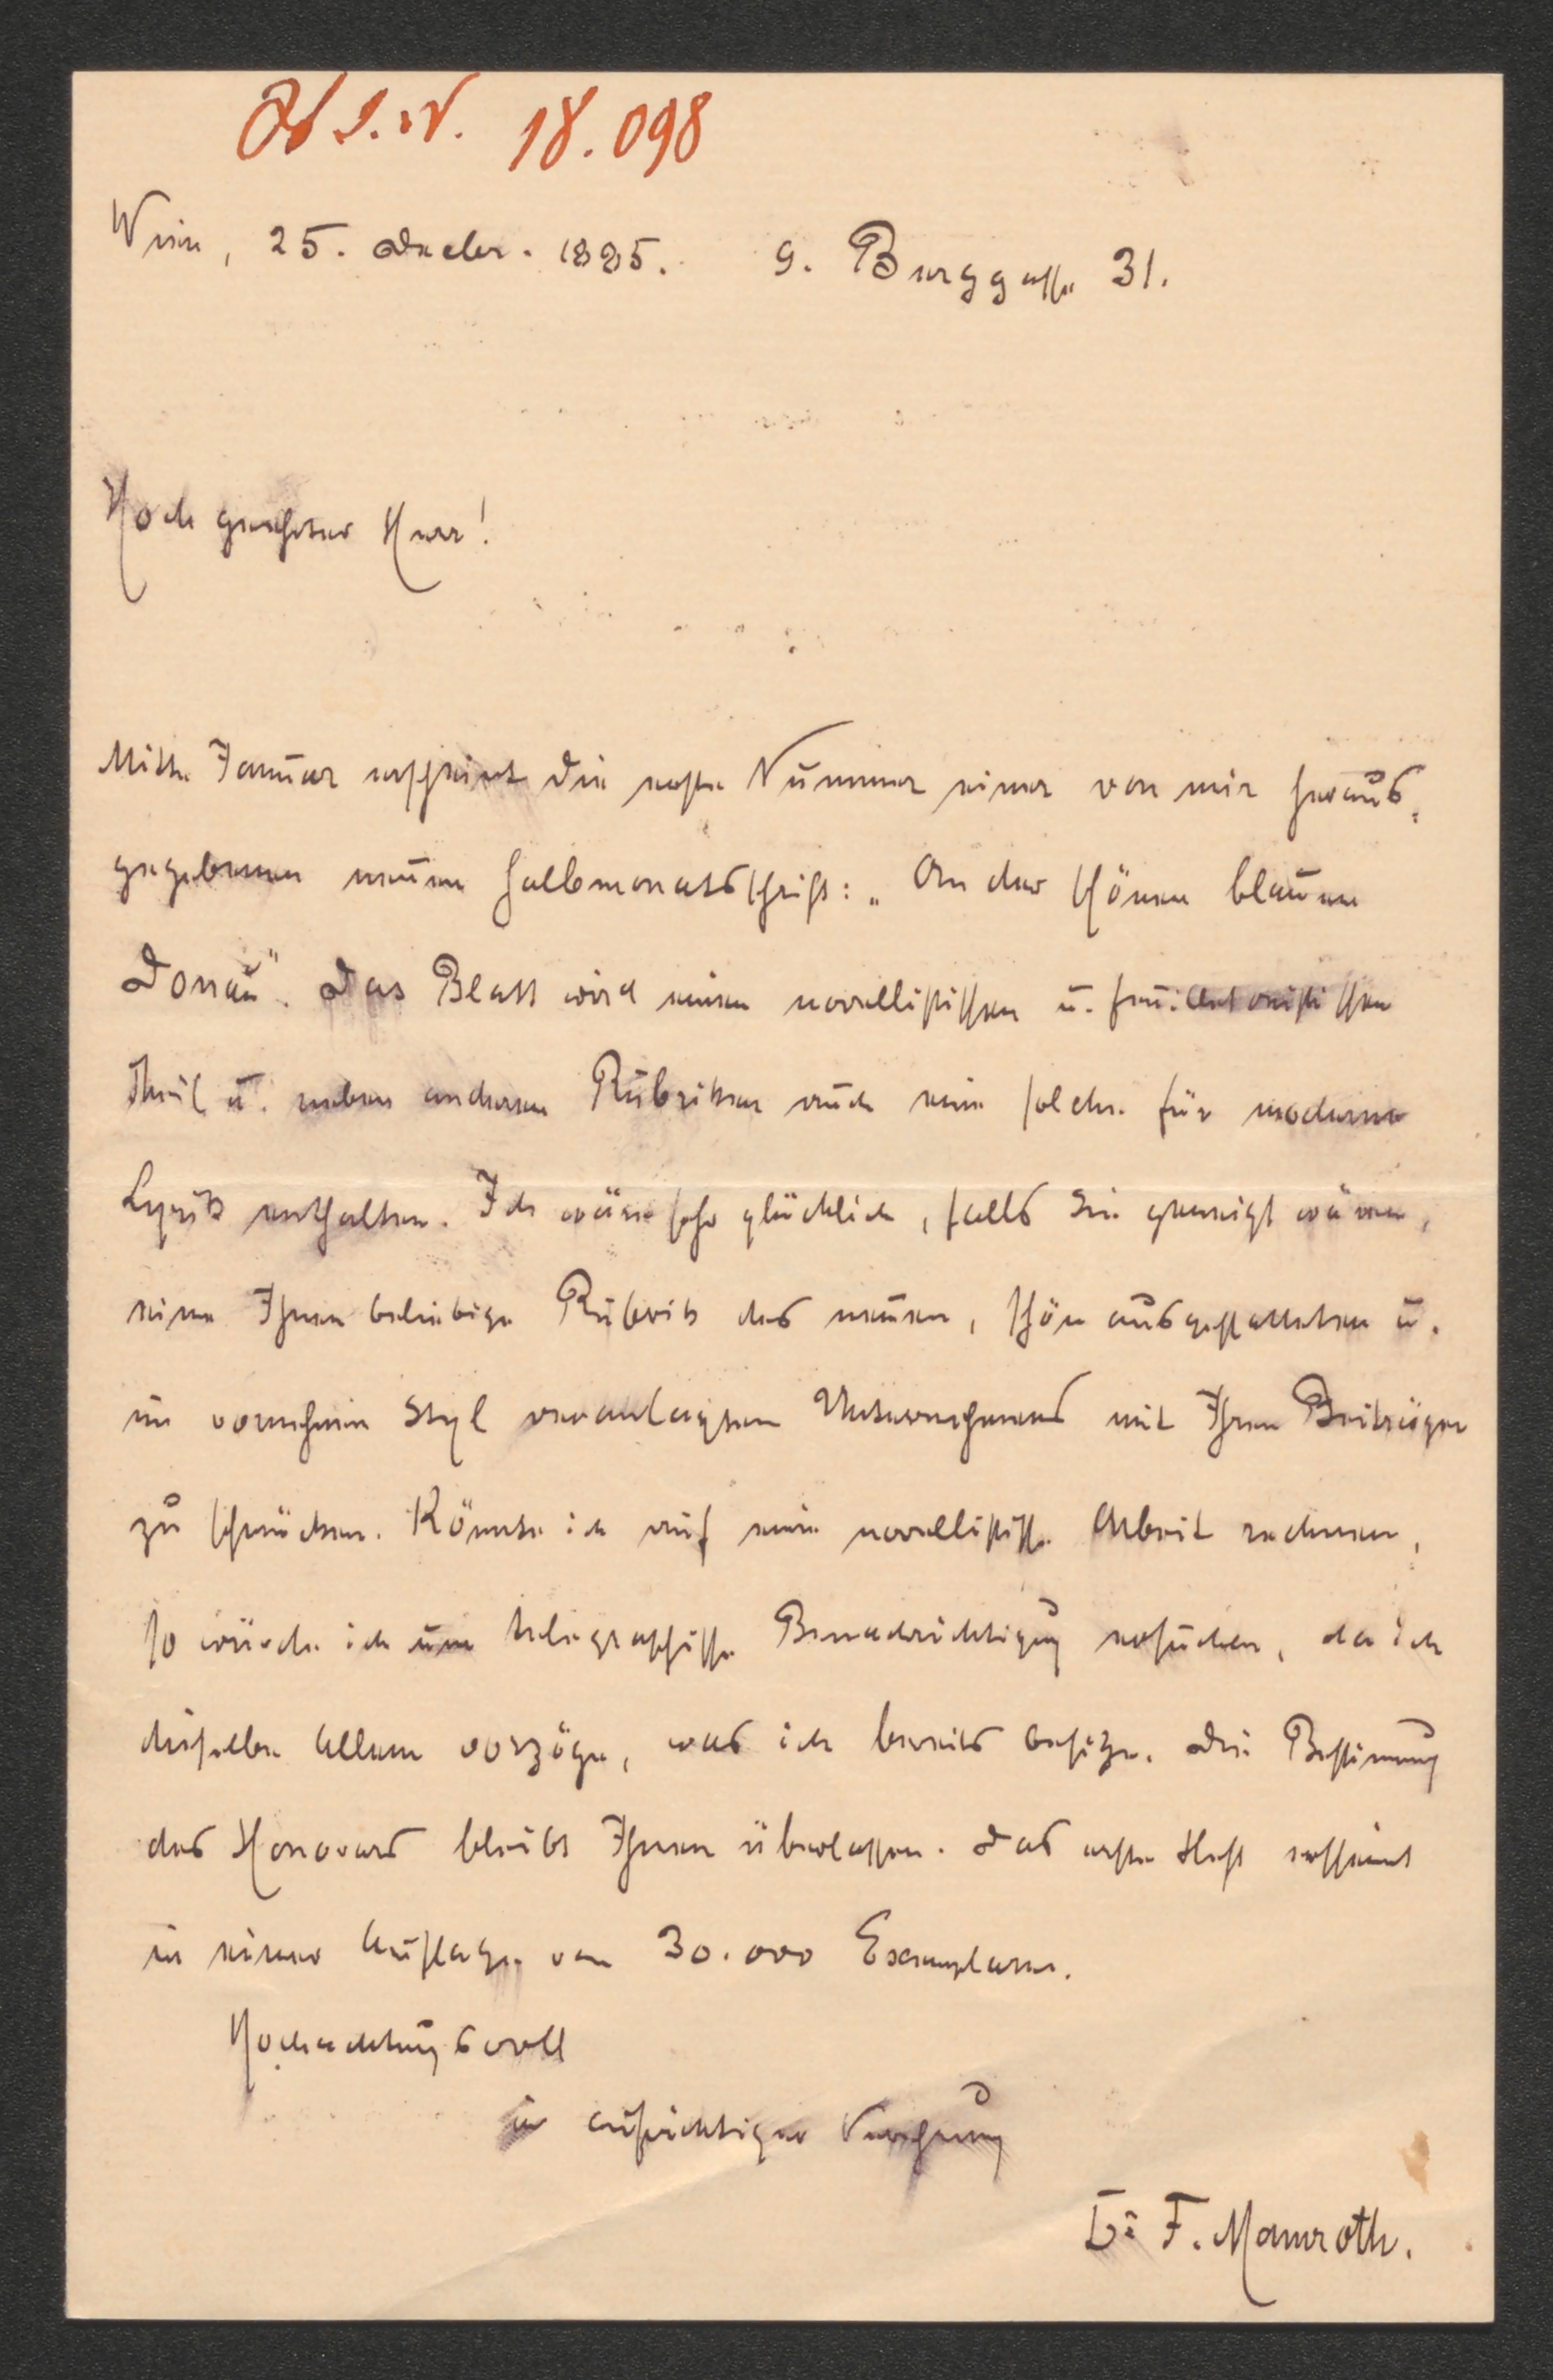 I. N. 18.098
Wien, 25. Decbr. 1885. 9. Burggasse 31.
Hochgeehrter Herr!
Mitte Januar erscheint die erste Nummer einer von mir heraus-
gegebenen neuen Halbmonatsschrift: „An der schönen blauen
Donau". Das Blatt wird einen novellistischen u. feuilletonistischen
Theil u. neben anderen Rubriken auch eine solche für moderne
Lyrik enthalten. Ich wäre sehr glücklich, falls Sie geneigt wären,
eine Ihnen beliebige Rubrik des neuen, schön ausgestatteten u.
im vornehmen Styl veranlagten Unternehmens mit Ihren Beiträgen
zu schmücken. Könnte ich auf eine novellistische Arbeit rechnen,
so würde ich um telegraphische Benachrichtigung ersuchen, da ich
dieselbe Allem vorzöge, was ich bereits besitze. Die Bestimmung
des Honorars bleibt Ihnen überlassen. Das erste Heft erscheint
in einer Auflage von 30.000 Exemplaren.
Hochachtungsvoll
in aufrichtiger Verehrung
Dr F. Mamroth.